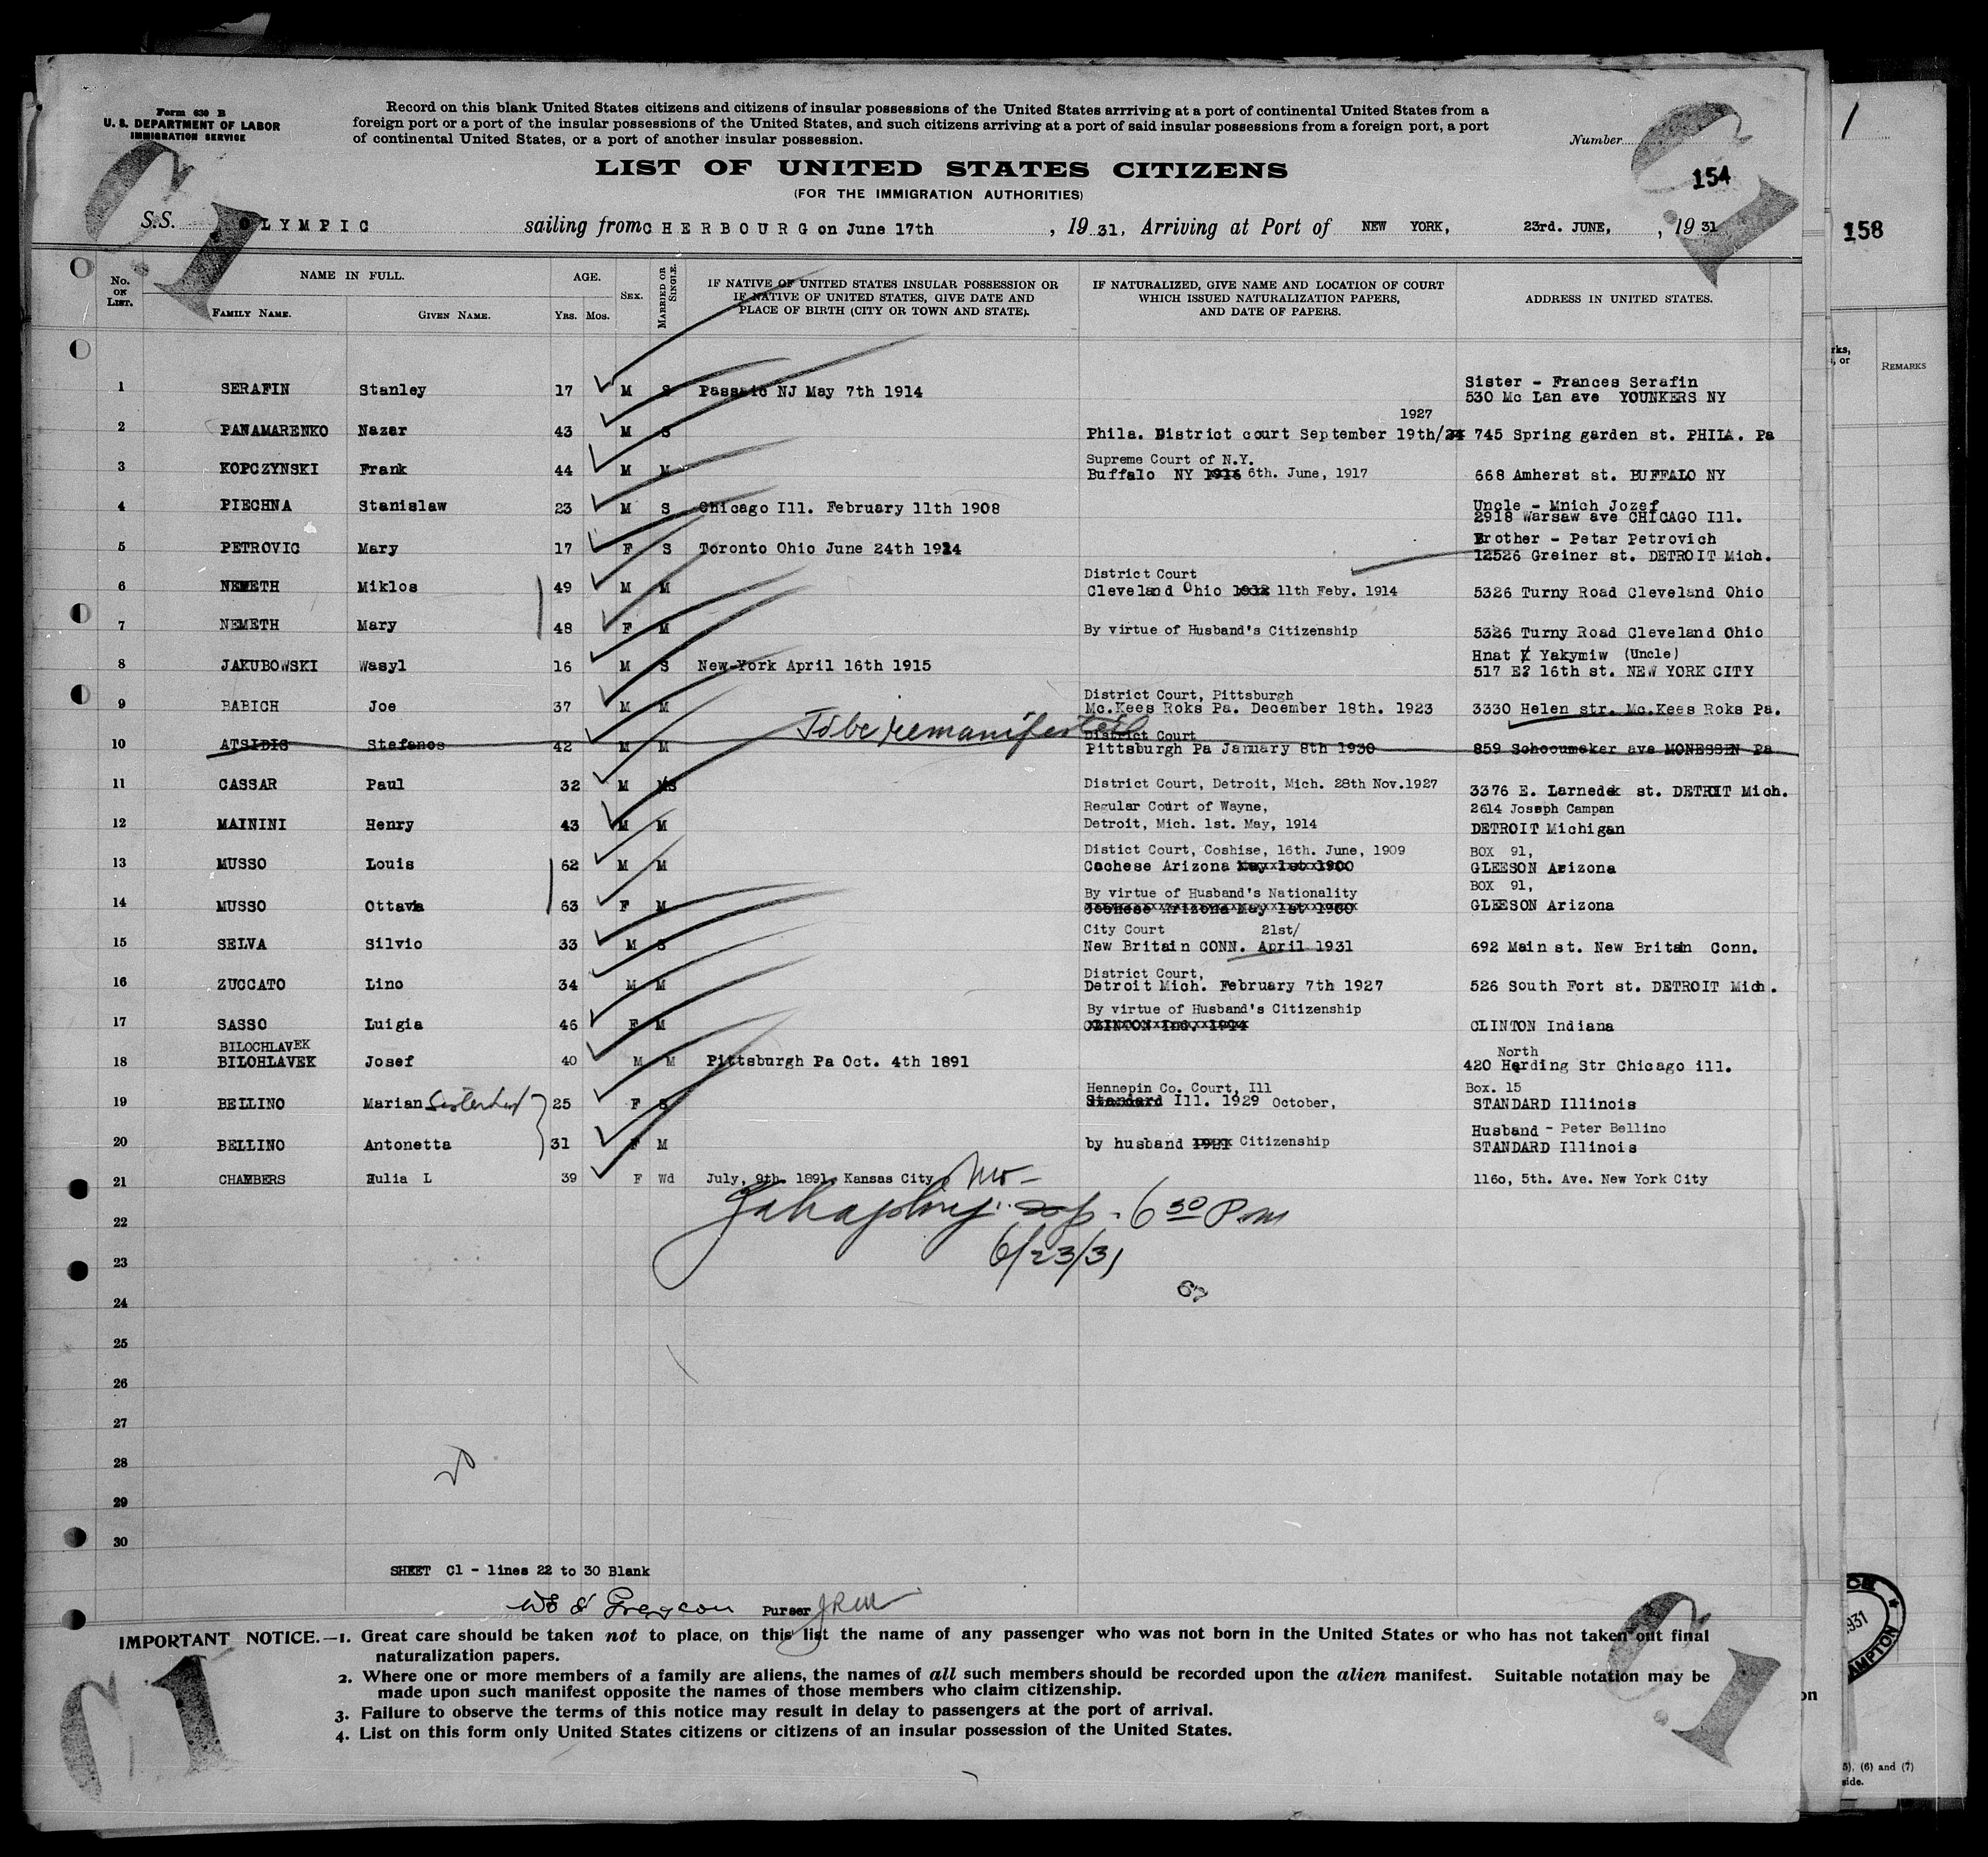 Form 630 B
U. S. DEPARTMENT OF LABOR
IMMIGRATION SERVICE
Record on this blank United States citizens and citizens of insular possessions of the United States arrriving at a port of continental United States from a
foreign port or a port of the insular possessions of the United States, and such citizens arriving at a port of said insular possessions from a foreign port, a port
of continental United States, or a port of another insular possession.
Number
C1
C1
154
LIST OF UNITED STATES CITIZENS
(FOR THE IMMIGRATION AUTHORITIES)
S.S. OLYMPIC sailing from CHERBOURG on June 17th, 19 31, Arriving at Port of NEW YORK, 23rd. JUNE, , 19 31
No. ON LIST. NAME IN FULL. AGE. SEX. MARRIED OR SINGLE. IF NATIVE OF UNITED STATES INSULAR POSSESSION OR IF NATIVE OF UNITED STATES, GIVE DATE AND PLACE OF BIRTH (CITY OR TOWN AND STATE). IF NATURALIZED, GIVE NAME AND LOCATION OF COURT WHICH ISSUED NATURALIZATION PAPERS, AND DATE OF PAPERS. ADDRESS IN UNITED STATES.
FAMILY NAME. GIVEN NAME. Yrs. Mos.
Sister - Frances Serafin
1 SERAFIN Stanley 17 M S Passaic NJ May 7th 1914 530 Mc Lan ave YOUNKERS NY
1927
2 PANAMARENKO Nazar 43 M S Phila. District court September 19th/24 745 Spring garden st. PHILA. Pa
Supreme Court of N.Y.
3 KOPCZYNSKI Frank 44 M M Buffalo NY 1916 6th. June, 1917 668 Amherst st. BUFFALO NY
Uncle - Mnich Jozef
4 PIECHNA Stanislaw 23 M S Chicago Ill. February 11th 1908 2918 Warsaw ave CHICAGO Ill.
Brother - Petar Petrovich
5 PETROVIC Mary 17 F S Toronto Ohio June 24th 1914 12526 Greiner st. DETROIT Mich.
District Court
6 NEMETH Miklos 49 M M Cleveland Ohio 1912 11th Feby. 1914 5326 Turny Road Cleveland Ohio
7 NEMETH Mary 48 F M By virtue of Husband's Citizenship 5326 Turny Road Cleveland Ohio
Hnat Yakymiw (Uncle)
8 JAKUBOWSKI Wasyl 16 M S New-York April 16th 1915 517 E? 16th st. NEW YORK CITY
District Court, Pittsburgh
9 BABICH Joe 37 M M Mc.Kees Roks Pa. December 18th. 1923 3330 Helen str. Mc.Kees Roks Pa.
To be remanifested
District Court
10 ATSIDIS Stefanos 42 M M Pittsburgh Pa January 8th 1930 859 Schooumaker ave MONESSEN Pa
11 CASSAR Paul 32 M S District Court, Detroit, Mich. 28th Nov.1927 3376 E. Larnedek st. DETROIT Mich.
Regular Court of Wayne, 2614 Joseph Campan
12 MAININI Henry 43 M M Detroit, Mich. 1st. May, 1914 DETROIT Michigan
Distict Court, Coshise, 16th. June, 1909 BOX 91,
13 MUSSO Louis 62 M M Cochese Arizona May 1st 1900 GLEESON Arizona
By virtue of Husband's Nationality BOX 91,
14 MUSSO Ottavia 63 F M Cochese Arizona May 1st 1900 GLEESON Arizona
City Court 21st/
15 SELVA Silvio 33 M S New Britain CONN. April 1931 692 Main st. New Britain Conn.
District Court,
16 ZUCCATO Lino 34 M M Detroit Mich. February 7th 1927 526 South Fort st. DETROIT Mich.
By virtue of Husband's Citizenship
17 SASSO Luigia 46 F M CLINTON Ind. 1914 CLINTON Indiana
BILOCHLAVEK North
18 BILOHLAVEK Josef 40 M M Pittsburgh Pa Oct. 4th 1891 420 Harding Str Chicago ill.
Hennepin Co. Court, Ill Box. 15
19 BELLINO Marian 25 F S Standard Ill. 1929 October, STANDARD Illinois
Husband - Peter Bellino
20 BELLINO Antonetta 31 F M by husband 1921 Citizenship STANDARD Illinois
21 CHAMBERS Hulia L 39 F Wd July, 9th. 1891, Kansas City, Mo- 1160, 5th. Ave. New York City
22 6 30 P.m
23 6/23/31
24
25
26
27
28
29
30
SHEET C1 - lines 22 to 30 Blank
Purser
IMPORTANT NOTICE.—1. Great care should be taken not to place, on this list the name of any passenger who was not born in the United States or who has not taken out final
naturalization papers.
2. Where one or more members of a family are aliens, the names of all such members should be recorded upon the alien manifest. Suitable notation may be
made upon such manifest opposite the names of those members who claim citizenship.
3. Failure to observe the terms of this notice may result in delay to passengers at the port of arrival.
4. List on this form only United States citizens or citizens of an insular possession of the United States.
C1
C1
1
158
rks,
, or
REMARKS
CE
1931
AMPTON
on
5), (6) and (7)
side.